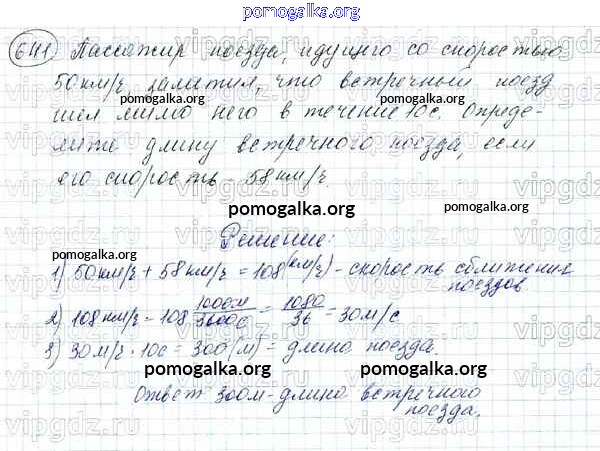 pomogalka.org
641 Пассажир поезда, идущего со скоростью
50км/ч, заметил, что встречный поезд
pomogalka.org pomogalka.org
шёл мимо него в течение 10с. Опреде-
лите длину встречного поезда, если
его скорость - 58км/ч.
pomogalka.org
Решение:
1) 50км/ч + 58км/ч = 108(км/ч) - скорость сближения
поездов
2) 108км/ч = 108 1000м/3600с = 1080/36 = 30м/с
3) 30м/ч · 10с = 300(м) = длина поезда.
pomogalka.org pomogalka.org
Ответ 300м - длина встречного
поезда.
pomogalka.org
vipgdz.ru